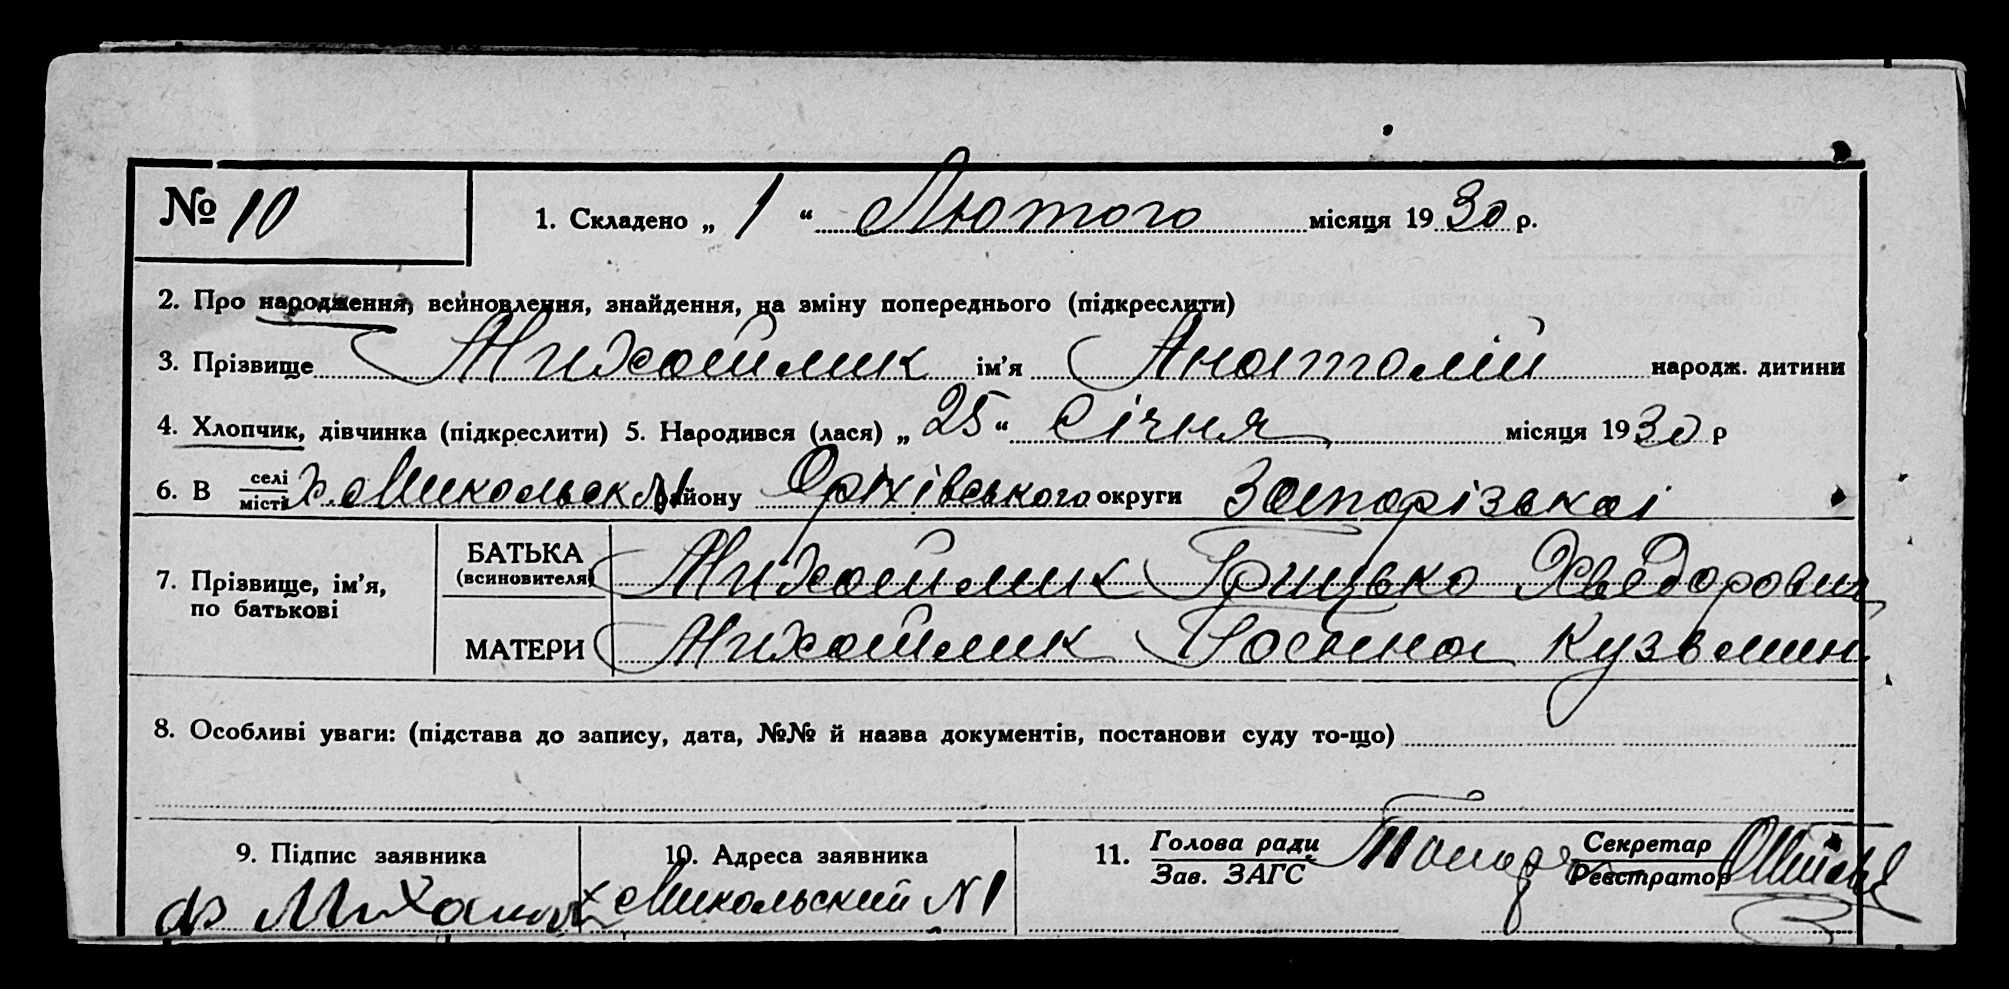 № 10
1. Складено „ 1 “ Лютого місяця 1930 р.
2. Про народження, всиновлення, знайдення, на зміну попереднього (підкреслити)
3. Прізвище Михайлик ім’я Анатолій народж. дитини
4. Хлопчик, дівчинка (підкреслити) 5. Народився (лася) „ 25 “ Січня місяця 1930 р
6. В селі місті х. Микольськ N1 району Оріхівського округи Запорізькоі
7. Прізвище, ім’я, по батькові
БАТЬКА (всиновителя) Михайлик Грицько Хведорович
МАТЕРИ Михайлик Кузьмин
8. Особливі уваги: (підстава до запису, дата, №№ й назва документів, постанови суду то-що)
9. Підпис заявника
10. Адреса заявника
х Микольский N1
11. Голова ради Зав. ЗАГС
Секретар Реєстратор